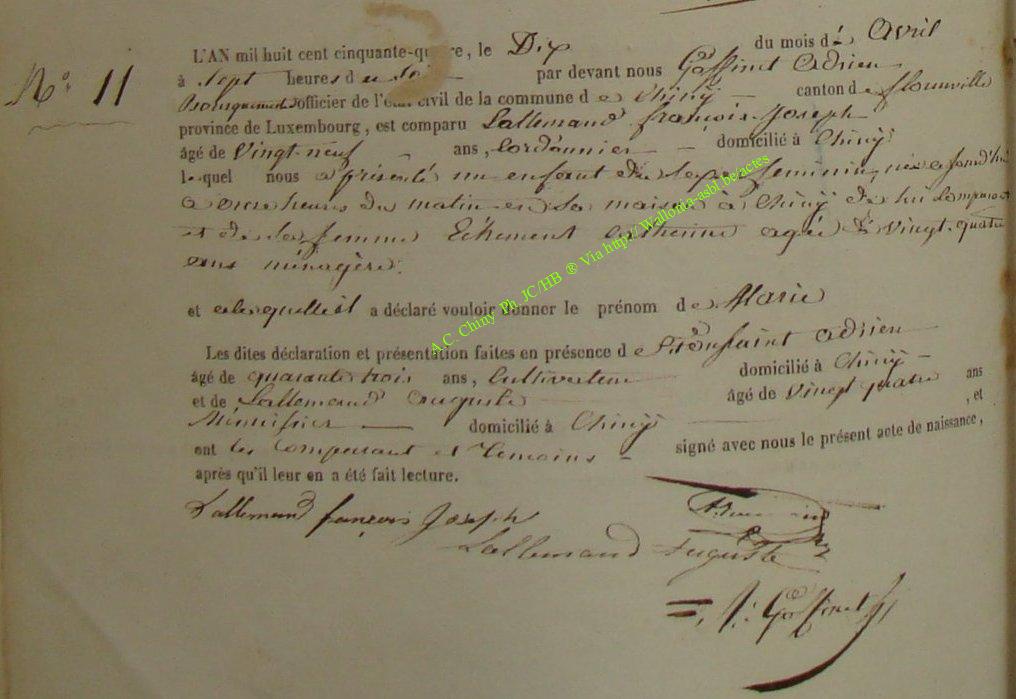 N° 11
L'AN mil huit cent cinquante-quatre, le Dix du mois d'Avril
à Sept heures du soir par devant nous Goffinet Adrien
Bourguemestre officier de l'état civil de la commune de Chiny canton de florenville
province de Luxembourg, est comparu Lallemand françois-Joseph
âgé de Vingt-neuf ans, Cordonnier domicilié à Chiny
lequel nous a présenté un enfant du sexe feminin, née aujourd'hui
a onze heures du matin en sa maison à Chiny de lui Comparant
et de sa femme Catherine agée de Vingt-quatre
ans ménagère.
et a déclaré vouloir donner le prénom de Marie
Les dites déclaration et présentation faites en présence de Adrien
âgé de quarante trois ans, Cultivateur domicilié à Chiny
et de Lallemand Auguste âgé de Vingt quatre ans
Menuisier domicilié à Chiny , et
ont les Comparant et Temoins signé avec nous le présent acte de naissance,
après qu'il leur en a été fait lecture.
Lallemand françois Joseph
Lallemand Auguste
Goffinet
A.C. Chiny Ph. JC/HB ® Via http://Wallonia-asbl.be/actes